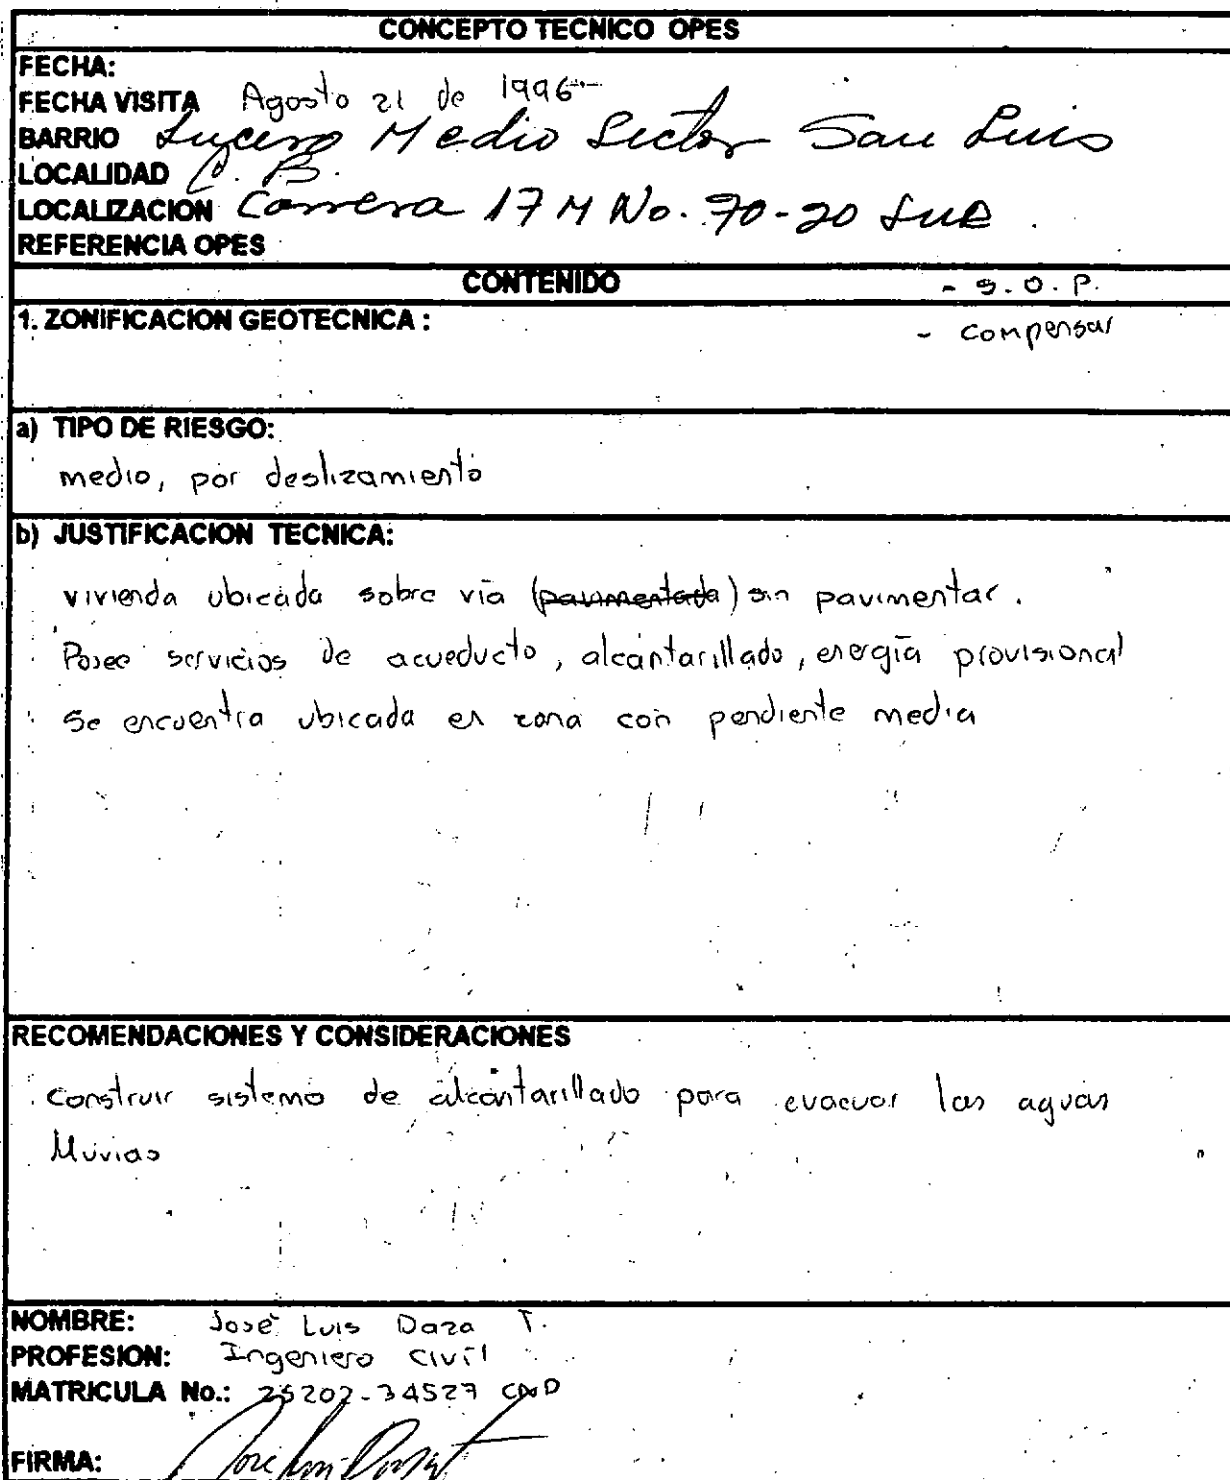 CONCEPTO TECNICO OPES
FECHA:
FECHA VISITA Agosto 21 de 1996
BARRIO Lucero Medio Sector San Luis
LOCALIDAD C. B.
LOCALIZACION Carrera 17 M No. 70-20 Sur
REFERENCIA OPES
CONTENIDO - S.O.P.
1. ZONIFICACION GEOTECNICA :
- compensar
a) TIPO DE RIESGO:
medio, por deslizamiento
b) JUSTIFICACION TECNICA:
vivienda ubicada sobre vía (pavimentada) sin pavimentar.
Posee servicios de acueducto, alcantarillado, energía provisional
se encuentra ubicada en zona con pendiente media
RECOMENDACIONES Y CONSIDERACIONES
construir sistema de alcantarillado para evacuar las aguas
lluvias
NOMBRE: José Luis Daza T.
PROFESION: Ingeniero Civil
MATRICULA No.: 25202-34527 CND
FIRMA: